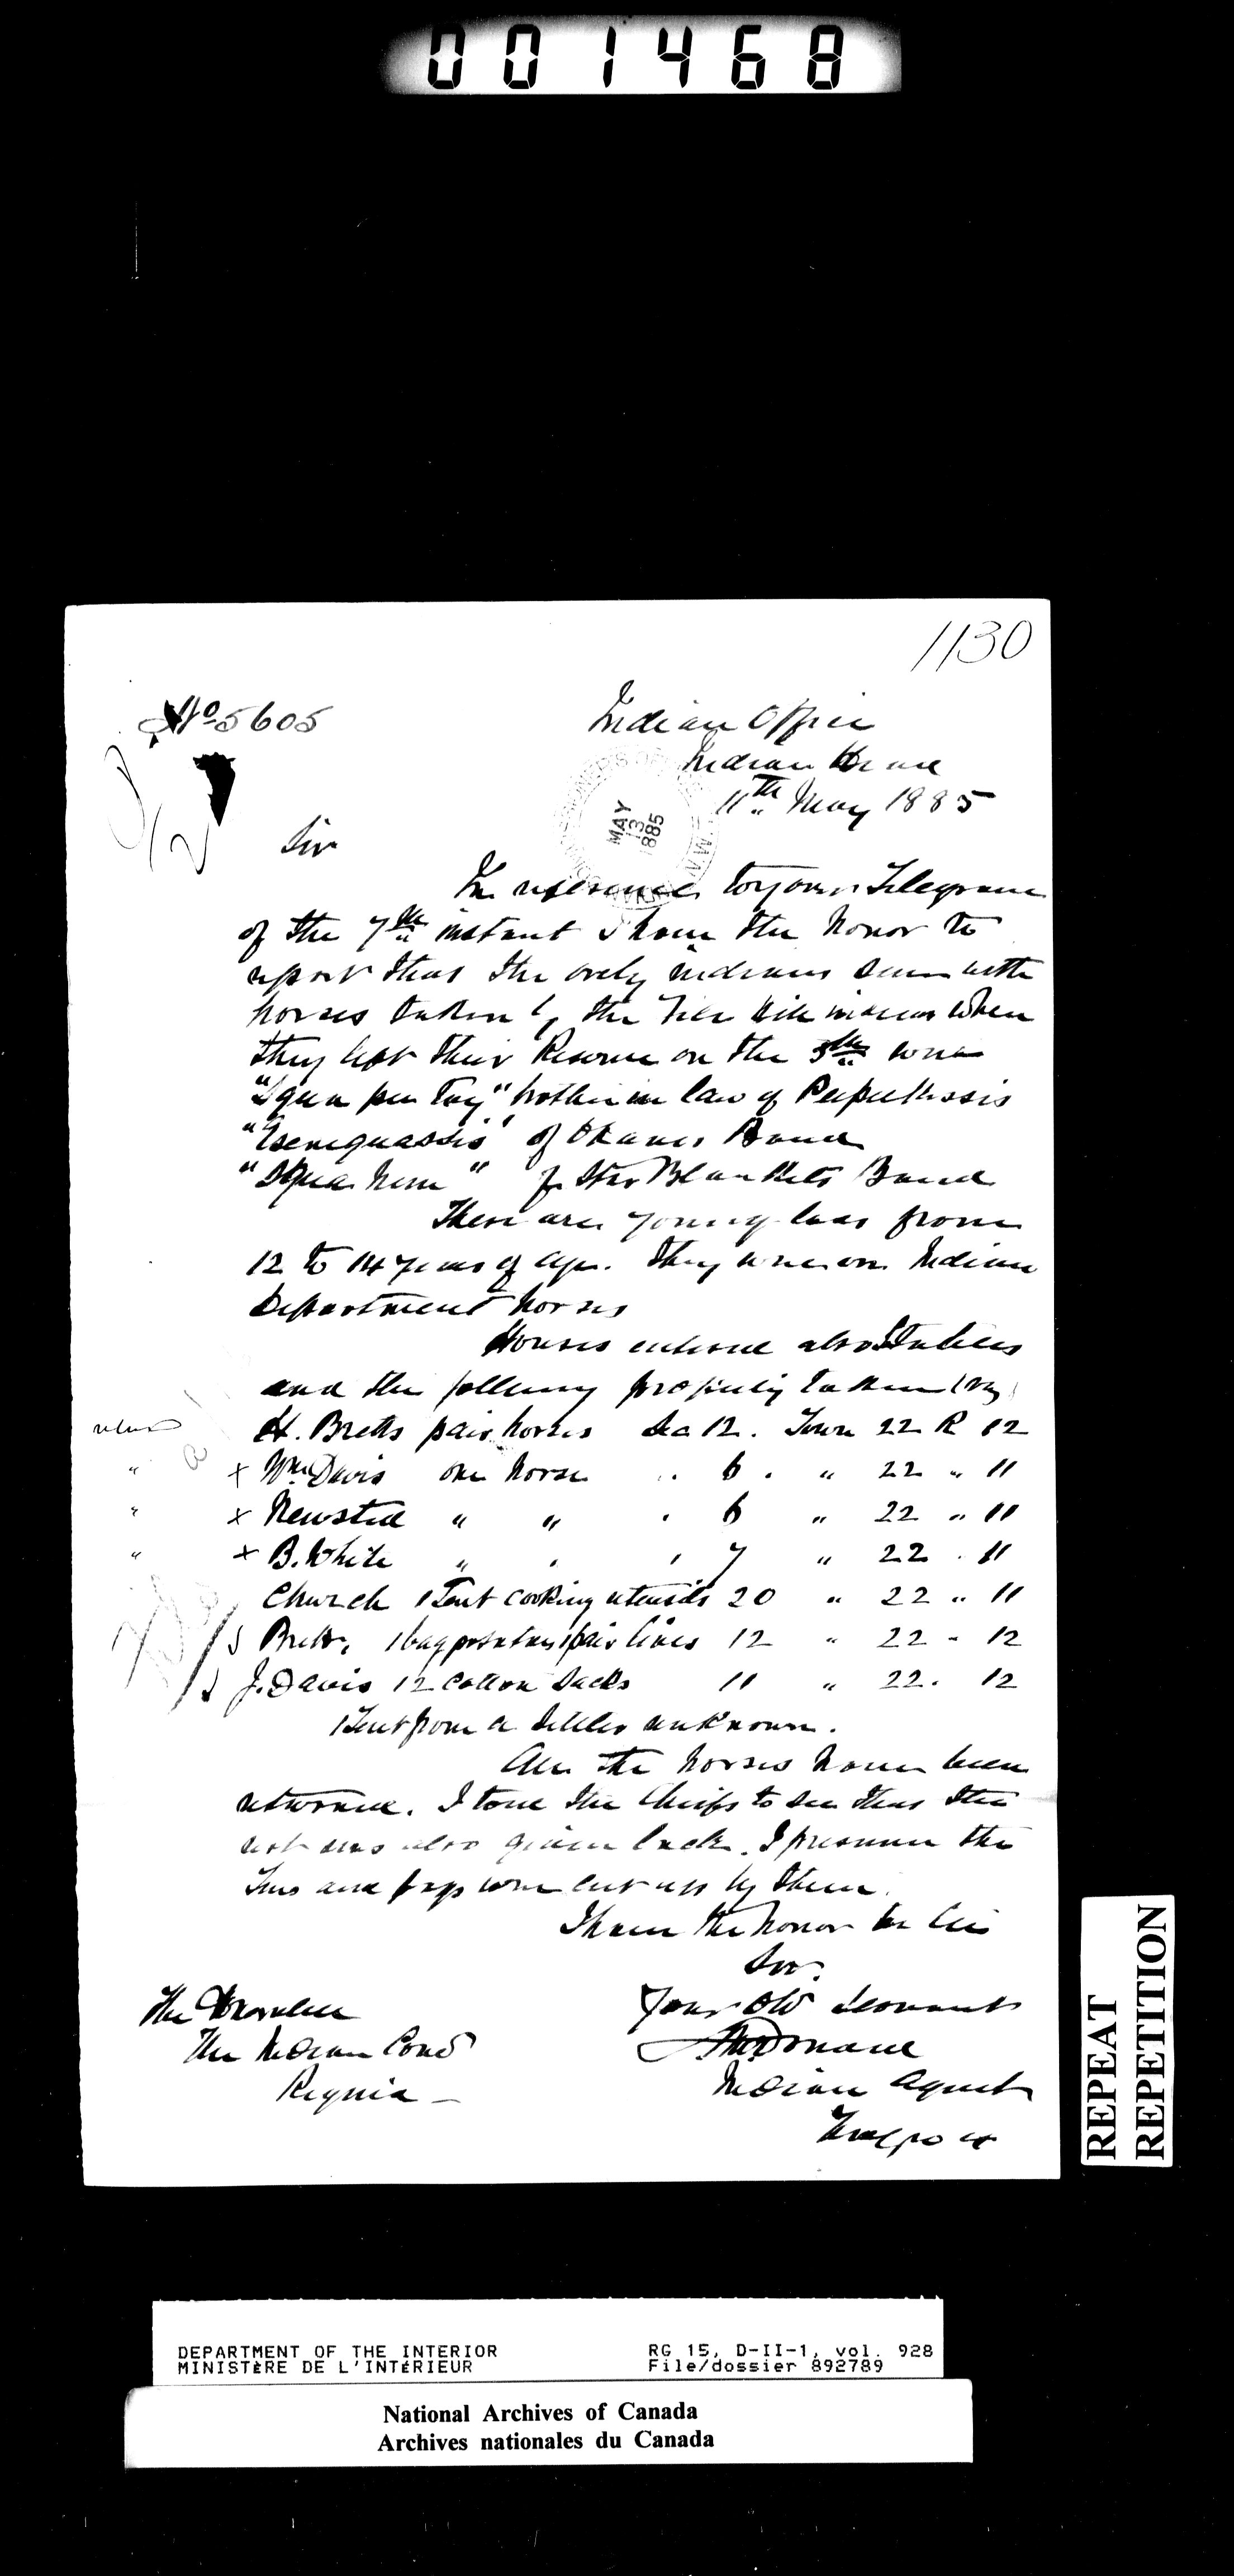 001468
1130
No 5605
Indian Office
Indian Head
11th May 1885
MAY
13
1885
Sir
In reference to your Telegram
of the 7th instant I have the honor to
report that the only indians seen with
horses taken by the File Hill indians when
they left their Reserve on the 5th were
brother in law of Peepeekeesis
of Okanes Band
of Star Blankets Band
These are young lads from
12 to 14 years of age. They were on Indian
Department horses
Houses entered also Stables
and the following property taken
H. Bretts pair horses Sec 12. Town 22 R 12
" x Wm Davis one horse " 6 . " 22 " 11
" x Newsted " " " 6 " 22 " 11
" x B. White " " " 7 " 22 . 11
Church 1 Tent cooking utensils 20 " 22 " 11
Bretts, 1 bag potatoes 1 pair lines 12 " 22 " 12
J. Davis 12 cotton sacks 11 " 22 . 12
1 Tent from a settler unknown.
All the horses have been
returned. I told the Chiefs to see that the
rest was also given back. I presume the
and were cut up by them.
I have the honor to be
Sir
Your Obt Servant
The
The Indian Comr
Regina
Indian Agent
REPEAT
REPETITION
DEPARTMENT OF THE INTERIOR
MINISTÈRE DE L'INTÉRIEUR
RG 15, D-II-1, vol. 928
File/dossier 892789
National Archives of Canada
Archives nationales du Canada